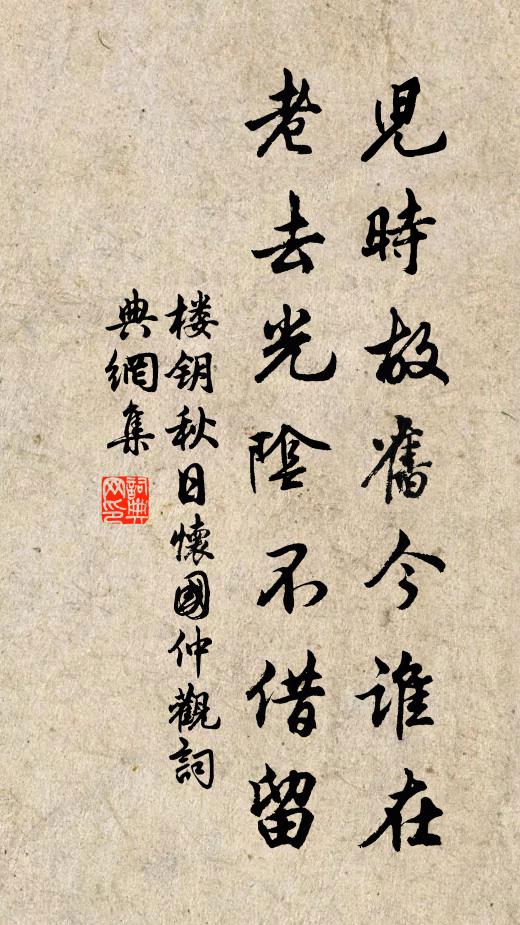 児時故舊今誰在
老去光陰不借留
楼钥秋日懷國仲觀詞
典網集
詞典
网印